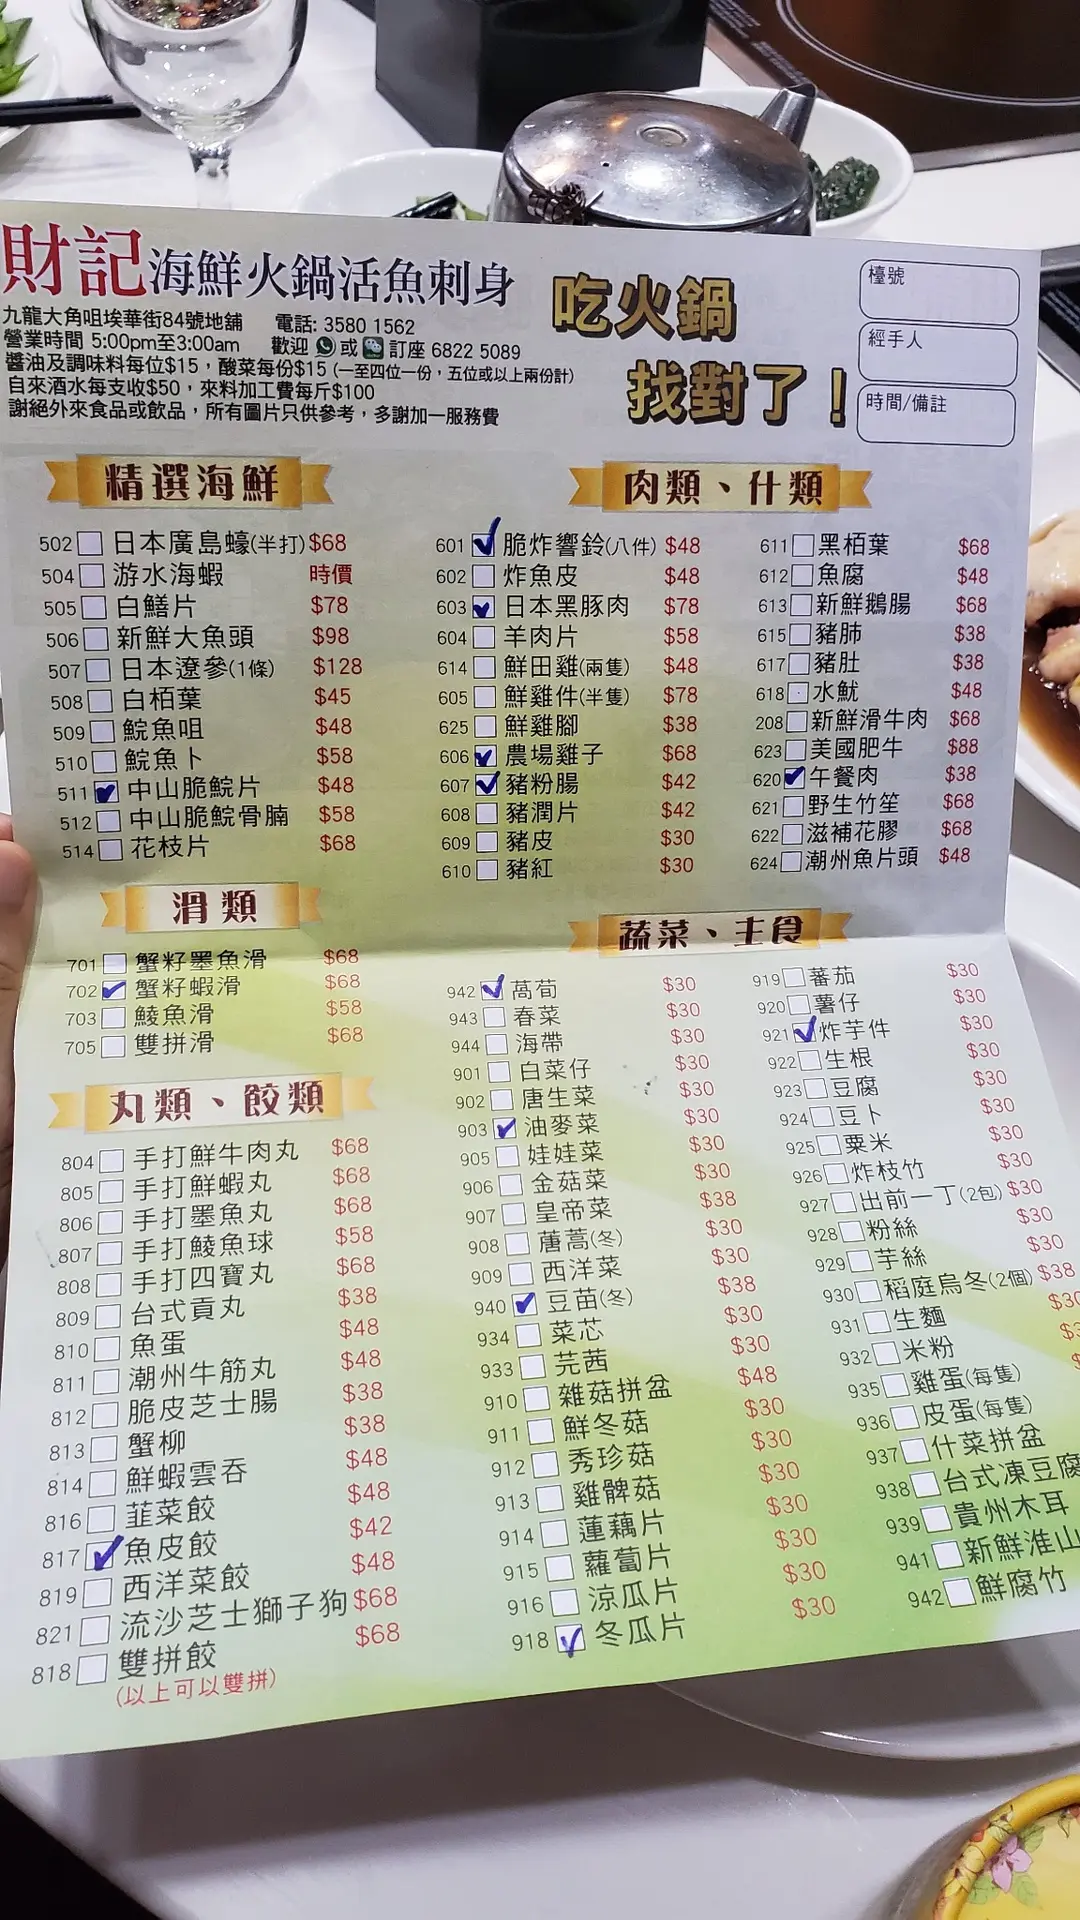 財記海鮮火鍋活魚刺身
九龍大角咀埃華街84號地舖 電話: 3580 1562
營業時間 5:00pm至3:00am 歡迎 或 訂座 6822 5089
醬油及調味料每位$15，酸菜每份$15 (一至四位一份，五位或以上兩份計)
自來酒水每支收$50，來料加工費每斤$100
謝絕外來食品或飲品，所有圖片只供參考，多謝加一服務費
吃火鍋
找對了！
檯號
經手人
時間/備註
精選海鮮
502 日本廣島蠔(半打) $68
504 游水海蝦 時價
505 白鱔片 $78
506 新鮮大魚頭 $98
507 日本遼參(1條) $128
508 白栢葉 $45
509 鯇魚咀 $48
510 鯇魚卜 $58
511 中山脆鯇片 $48
512 中山脆鯇骨腩 $58
514 花枝片 $68
肉類、什類
601 脆炸響鈴(八件) $48
602 炸魚皮 $48
603 日本黑豚肉 $78
604 羊肉片 $58
614 鮮田雞(兩隻) $48
605 鮮雞件(半隻) $78
625 鮮雞腳 $38
606 農場雞子 $68
607 豬粉腸 $42
608 豬潤片 $42
609 豬皮 $30
610 豬紅 $30
611 黑栢葉 $68
612 魚腐 $48
613 新鮮鵝腸 $68
615 豬肺 $38
617 豬肚 $38
618 水魷 $48
208 新鮮滑牛肉 $68
623 美國肥牛 $88
620 午餐肉 $38
621 野生竹笙 $68
622 滋補花膠 $68
624 潮州魚片頭 $48
滑類
701 蟹籽墨魚滑 $68
702 蟹籽蝦滑 $68
703 鯪魚滑 $58
705 雙拼滑 $68
丸類、餃類
804 手打鮮牛肉丸 $68
805 手打鮮蝦丸 $68
806 手打墨魚丸 $68
807 手打鯪魚球 $58
808 手打四寶丸 $68
809 台式貢丸 $38
810 魚蛋 $48
811 潮州牛筋丸 $48
812 脆皮芝士腸 $38
813 蟹柳 $38
814 鮮蝦雲吞 $48
816 韮菜餃 $48
817 魚皮餃 $42
819 西洋菜餃 $48
821 流沙芝士獅子狗 $68
818 雙拼餃 $68
(以上可以雙拼)
蔬菜、主食
942 萵荀 $30
943 春菜 $30
944 海帶 $30
901 白菜仔 $30
902 唐生菜 $30
903 油麥菜 $30
905 娃娃菜 $30
906 金菇菜 $30
907 皇帝菜 $38
908 蓎蒿(冬) $30
909 西洋菜 $30
940 豆苗(冬) $38
934 菜芯 $30
933 芫茜 $30
910 雜菇拼盆 $48
911 鮮冬菇 $30
912 秀珍菇 $30
913 雞髀菇 $30
914 蓮藕片 $30
915 蘿蔔片 $30
916 涼瓜片 $30
918 冬瓜片 $30
919 蕃茄 $30
920 薯仔 $30
921 炸芋件 $30
922 生根 $30
923 豆腐 $30
924 豆卜 $30
925 粟米 $30
926 炸枝竹 $30
927 出前一丁(2包) $30
928 粉絲 $30
929 芋絲 $30
930 稻庭烏冬(2個) $38
931 生麵
932 米粉
935 雞蛋(每隻)
936 皮蛋(每隻)
937 什菜拼盆
938 台式凍豆腐
939 貴州木耳
941 新鮮淮山
942 鮮腐竹